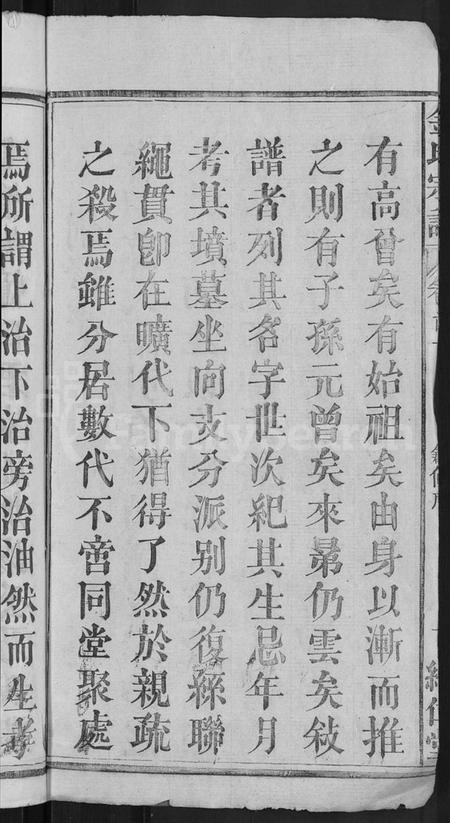 金氏宗譜
有高曾矣有始祖矣由身以漸而推
之則有子孫元曾矣來晜仍雲矣敍
譜者列其名字世次紀其生忌年月
考其墳墓坐向支分派別仍復絲聯
繩貫卽在曠代下猶得了然於親疏
之殺焉雖分居數代不啻同堂聚處
焉所謂上治下治旁治油然而生孝